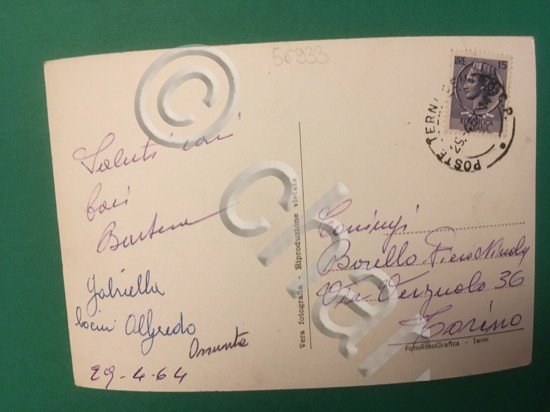 56933
LIRE 15
POSTE TERNI
Saluti cari
baci
Barbara
Gabriella
bacini Alfredo
Assunta
29-4-64
Vera fotografia - Riproduzione vietata
Coniugi
Borello Piero
Via Verzuolo 36
Torino
FotoRotoGrafica - Terni
© chak